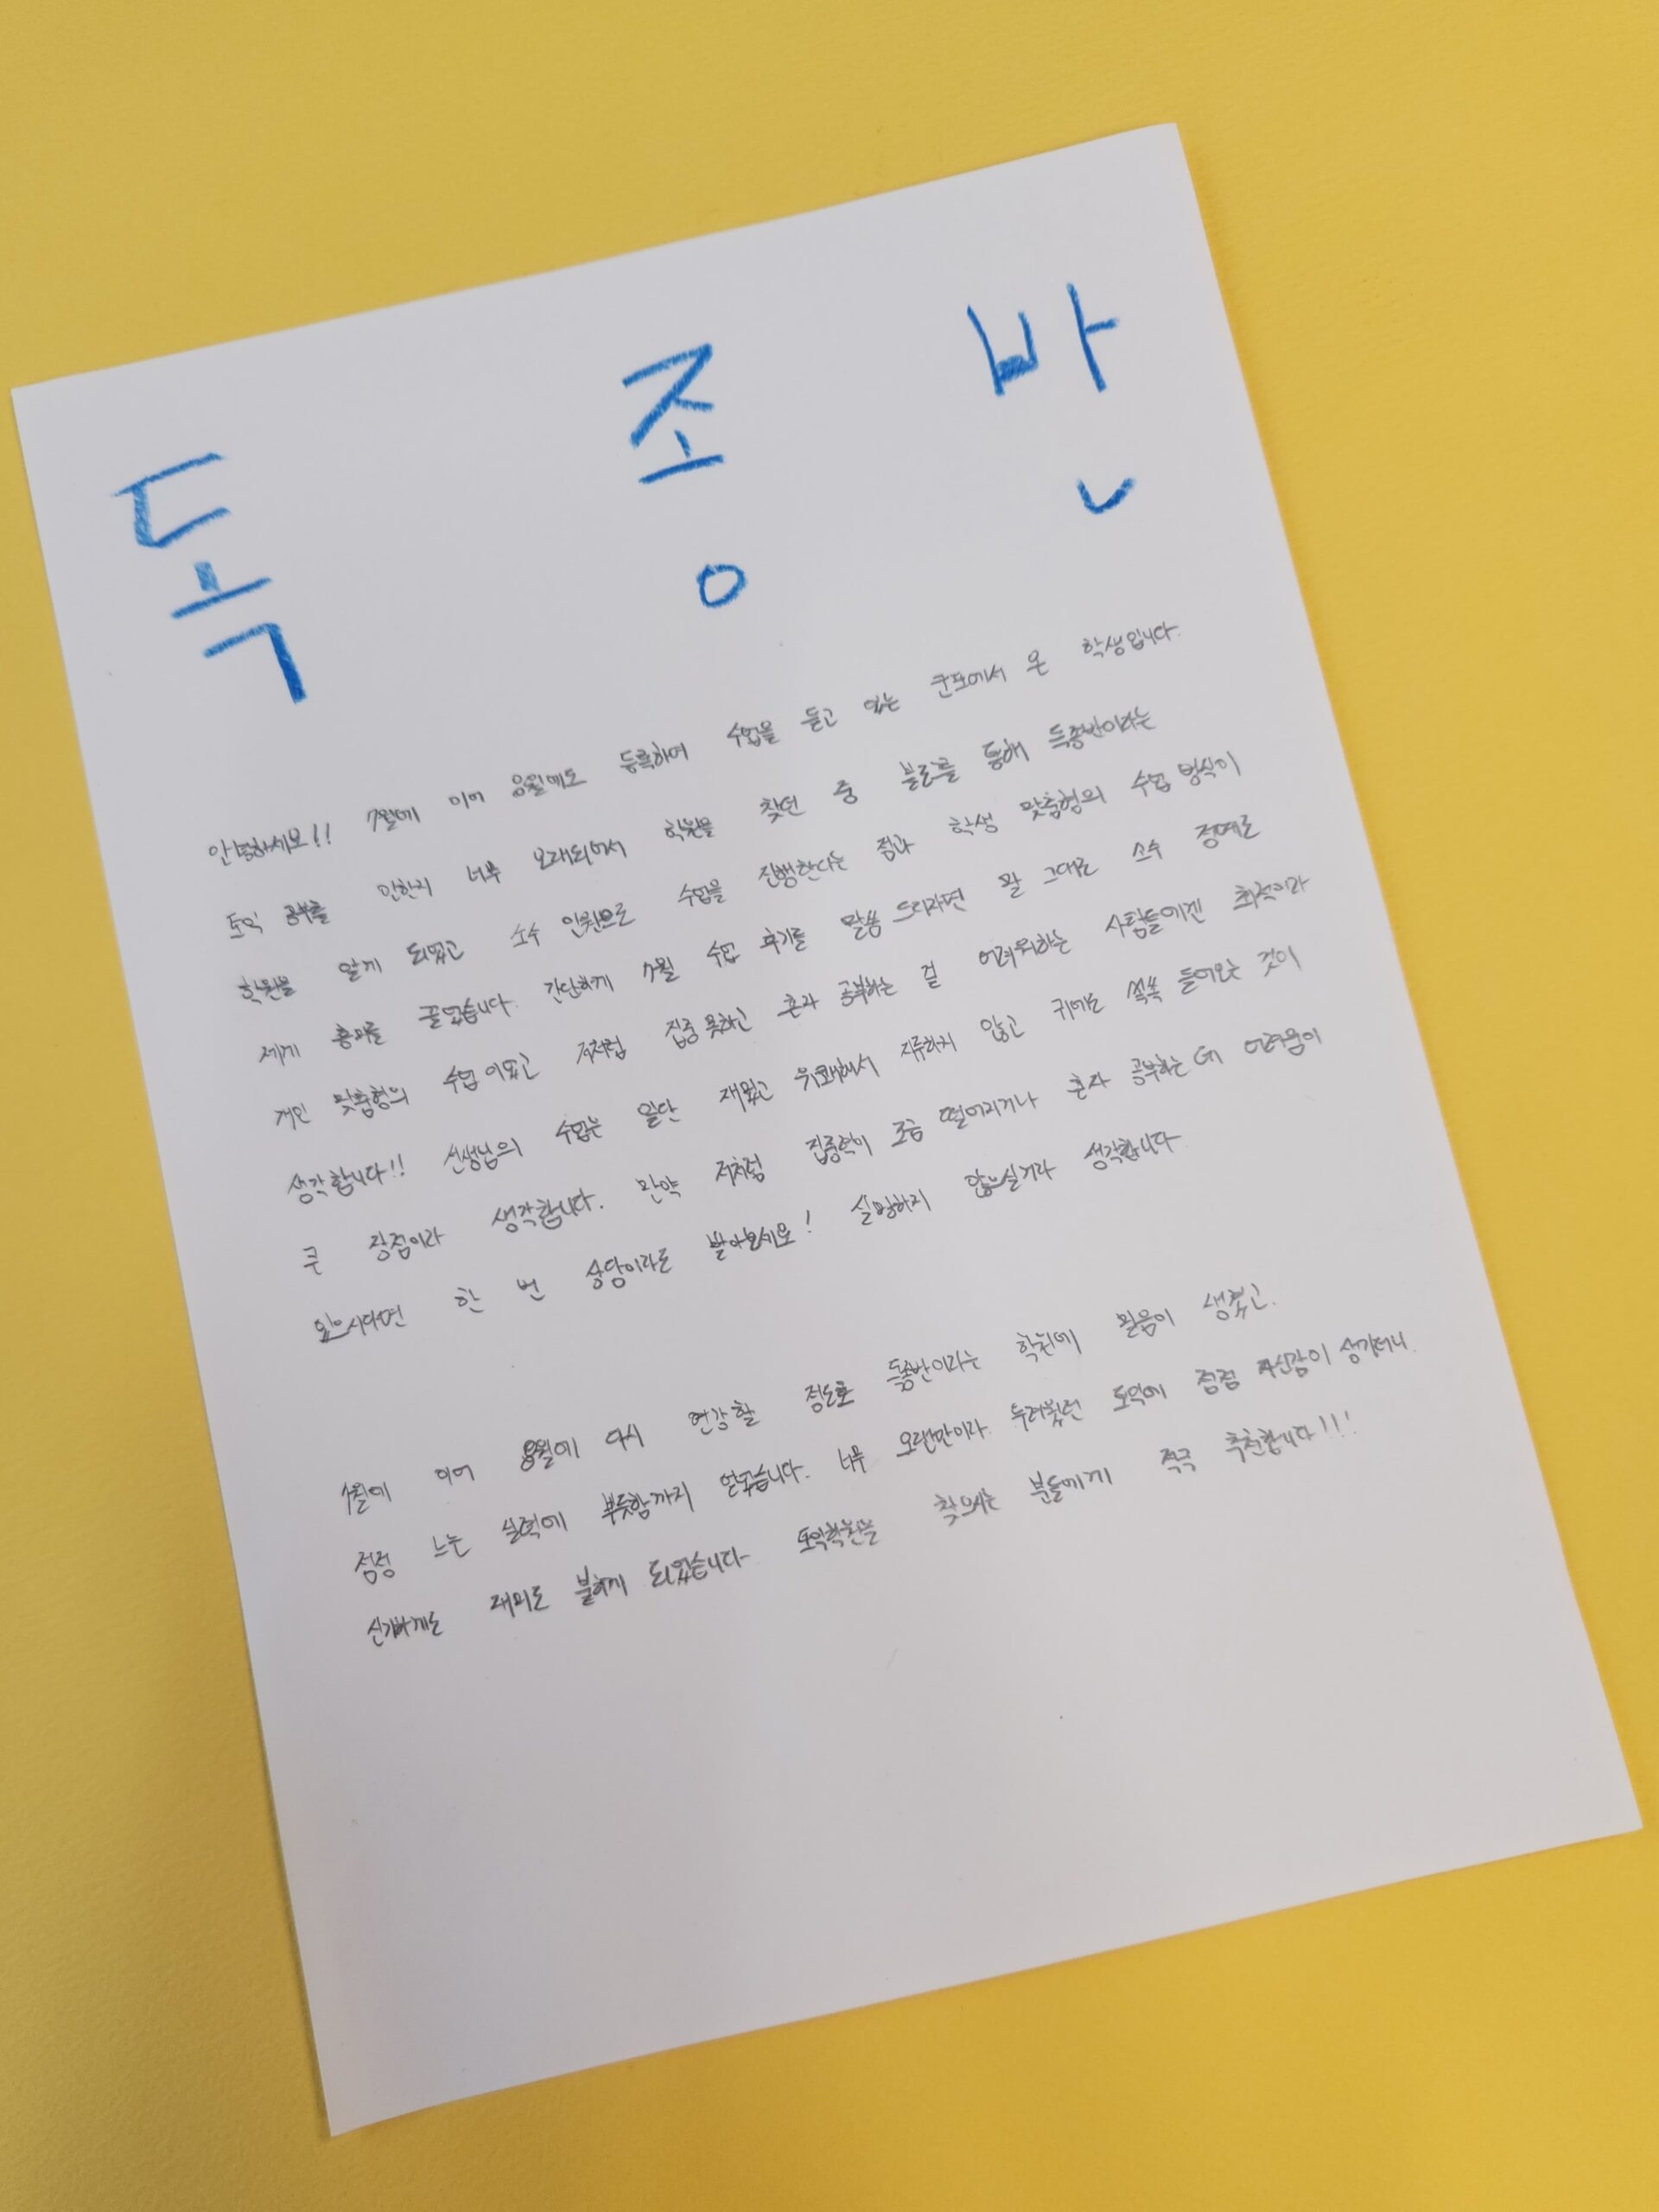 독종반
안녕하세요!! 7월에 이어 8월에도 등록하여 수업을 듣고 있는 군포에서 온 학생입니다.
토익 공부를 안한지 너무 오래되어서 학원을 찾던 중 블로그를 통해 독종반이라는
학원을 알게 되었고 소수 인원으로 수업을 진행한다는 점과 학생 맞춤형의 수업 방식이
제게 흥미를 끌었습니다. 간단하게 7월 수업 후기를 말씀 드리자면 말 그대로 소수 정예로
개인 맞춤형의 수업이었고 저처럼 집중 못하고 혼자 공부하는 걸 어려워하는 사람들에겐 최적이라
생각합니다!! 선생님의 수업은 일단 재밌고 유쾌해서 지루하지 않고 귀에도 쏙쏙 들어오는 것이
큰 장점이라 생각합니다. 만약 저처럼 집중력이 조금 떨어지거나 혼자 공부하는데 어려움이
있으시다면 한 번 상담이라도 받아보세요! 실망하지 않으실거라 생각합니다.
7월에 이어 8월에 다시 연강할 정도로 독종반이라는 학원에 믿음이 생겼고.
점점 느는 실력에 뿌듯함까지 얻었습니다. 너무 오랜만이라. 두려웠던 토익에 점점 자신감이 생기더니.
신기하게도 재미도 붙이게 되었습니다. 토익학원을 찾으시는 분들에게 적극 추천합니다!!!